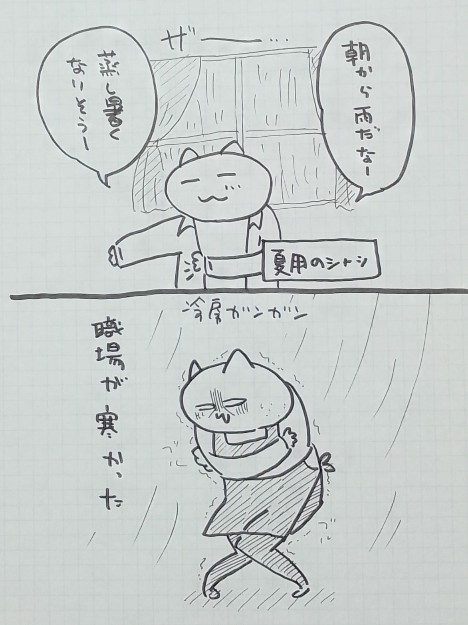 ザー・・・
朝から雨だなー
蒸し暑く
ないそうー
夏用のシャシ
冷房ガンガン
職場が寒かった